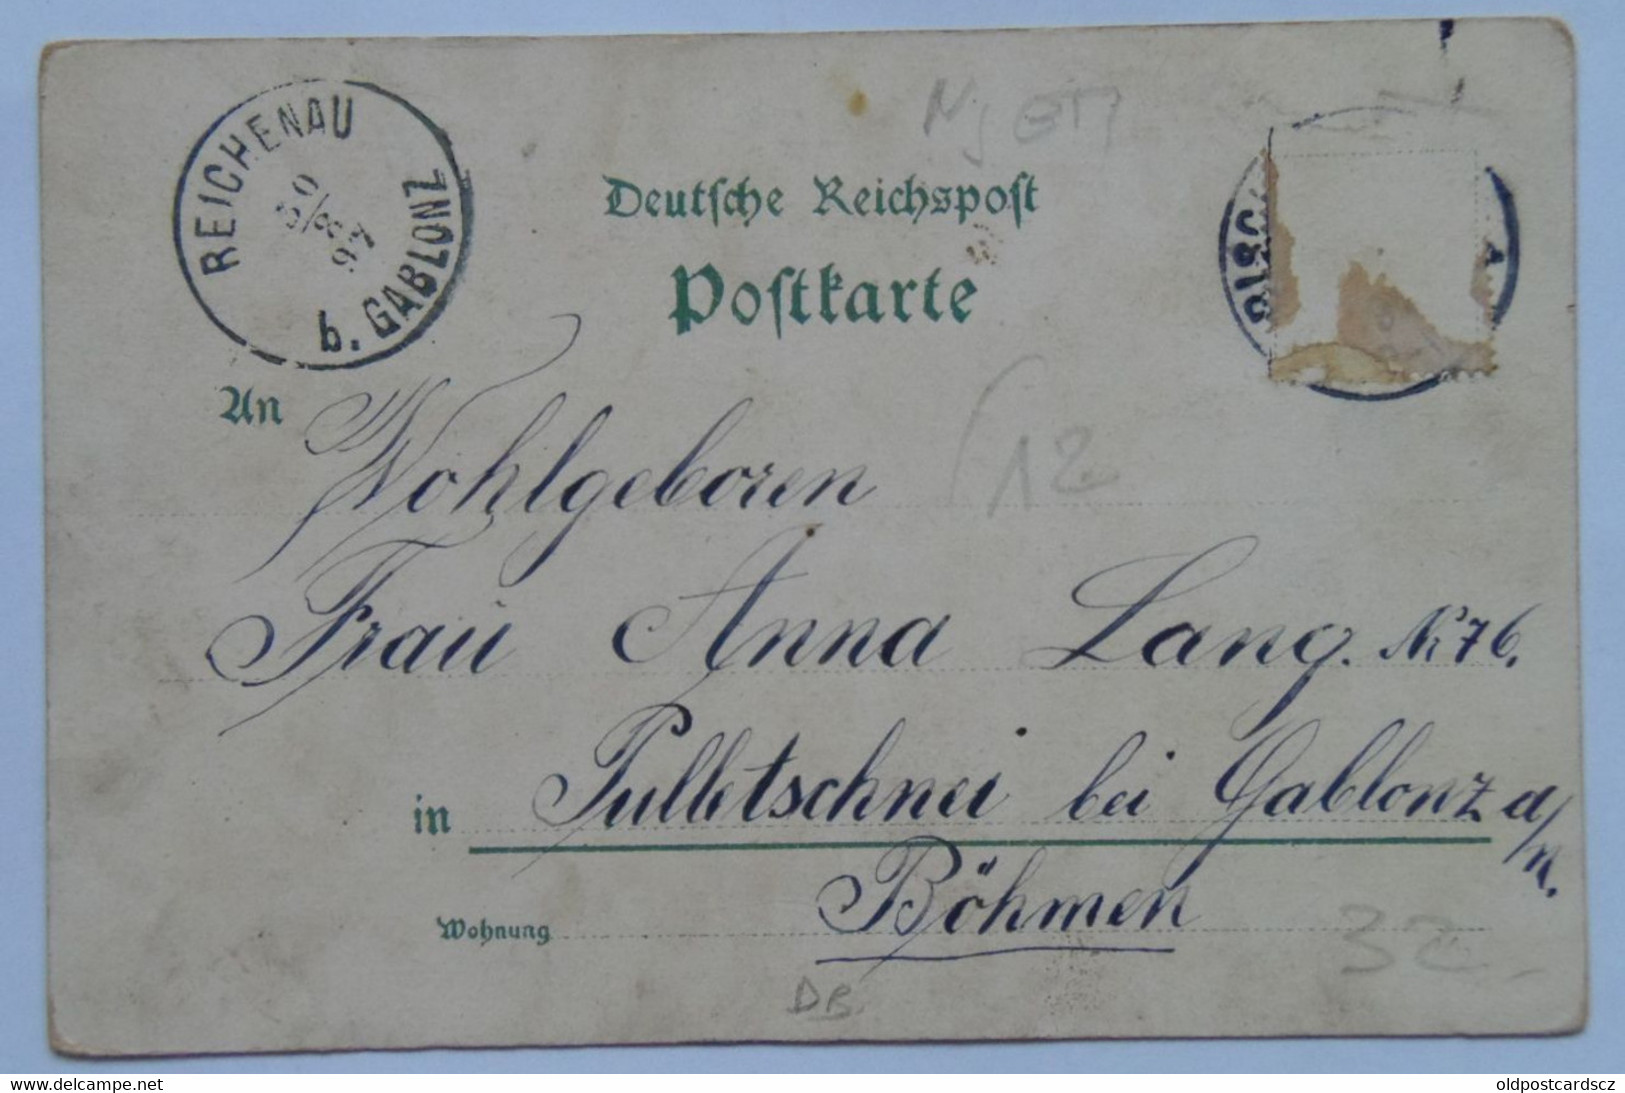 REICHENAU
b. GABLONZ
97
Deutsche Reichspost
Postkarte
12
An Wohlgeboren
Frau Anna Lang. Nr 76.
in Pulletschnei bei Gablonz a/n.
Böhmen
Wohnung
32
DB
delcampe.net
oldpostcardscz